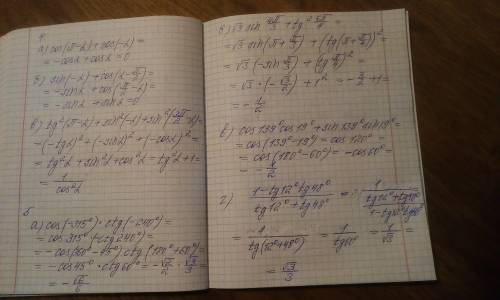 4
а) cos(π-α)+cos(-α)=
= -cosα+cosα=0
б) sin(-α)+cos(α-π/2)=
= -sinα+cos(π/2-α)=
= -sinα+sinα=0
в) tg²(π-α)+sin²(-α)+sin²(3π/2-α)=
=(-tgα)²+(-sinα)²+(-cosα)²=
=tg²α+sin²α+cos²α=tg²α+1=
= 1/cos²α
5
а) cos(-315°)·ctg(-240°)=
= cos315°(-ctg240°)=
= -cos(360°-45°)·ctg(180°+60°)=
= -cos45°·ctg60°= -√2/2·√3/3=
= -√6/6
√3 sin 4π/3 + tg² 5π/4=
=√3 sin(π+π/3)+(tg(π+π/4))²=
=√3·(-sin π/3)+(tg π/4)²=
=√3·(-√3/2)+1²= -3/2+1=
= -1/2
в) cos139°cos19°+sin139°sin19°=
=cos(139°-19°)=cos120°=
=cos(180°-60°)= -cos60°=
= -1/2
г) 1-tg12°tg48°/tg12°+tg48° =
= 1/tg(12°+48°) = 1/tg60° = 1/√3 =
= √3/3